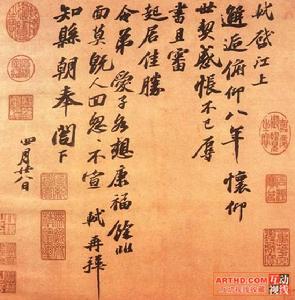 軾啓江上
邂逅俯仰八年懷仰
世契感悵不已辱
書且審
起居佳勝
令弟愛子各想康福餘非
面莫既人回忽〻不宣 軾再拜
知縣朝奉閣下
四月廿八日
ARTHD.COM
互动
视线